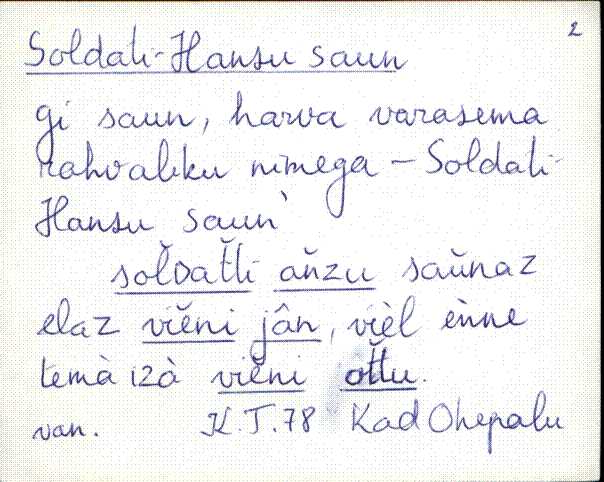 2
Soldati-Hansu saun
gi saun, harva varasema
rahvaliku nimega – Soldati-
Hansu saun`
soldat̆ti ańzu saŭnaz
elaz vĭĕni jân, vìèl èǹne
temà izà vĭĕni ot̆tu.
van. K.T.78 Kad Ohepalu